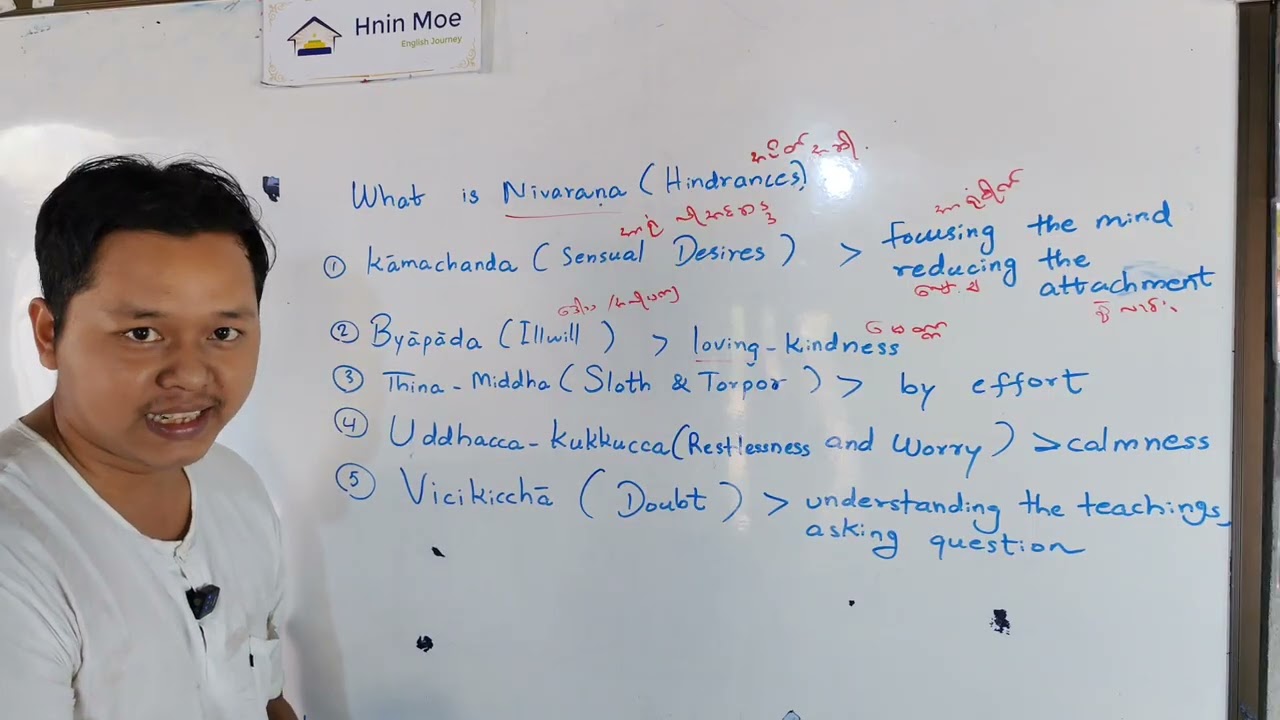 Hnin Moe
English Journey
What is Nivaraṇa (Hindrances)
① Kāmachanda (Sensual Desires) > focusing the mind
reducing the attachment
② Byāpāda (Illwill) > loving-kindness
မေတ္တာ
③ Thina-Middha (Sloth & Torpor) > by effort
④ Uddhacca-Kukkucca (Restlessness and Worry) > calmness
⑤ Vicikicchā (Doubt) > understanding the teachings,
asking question